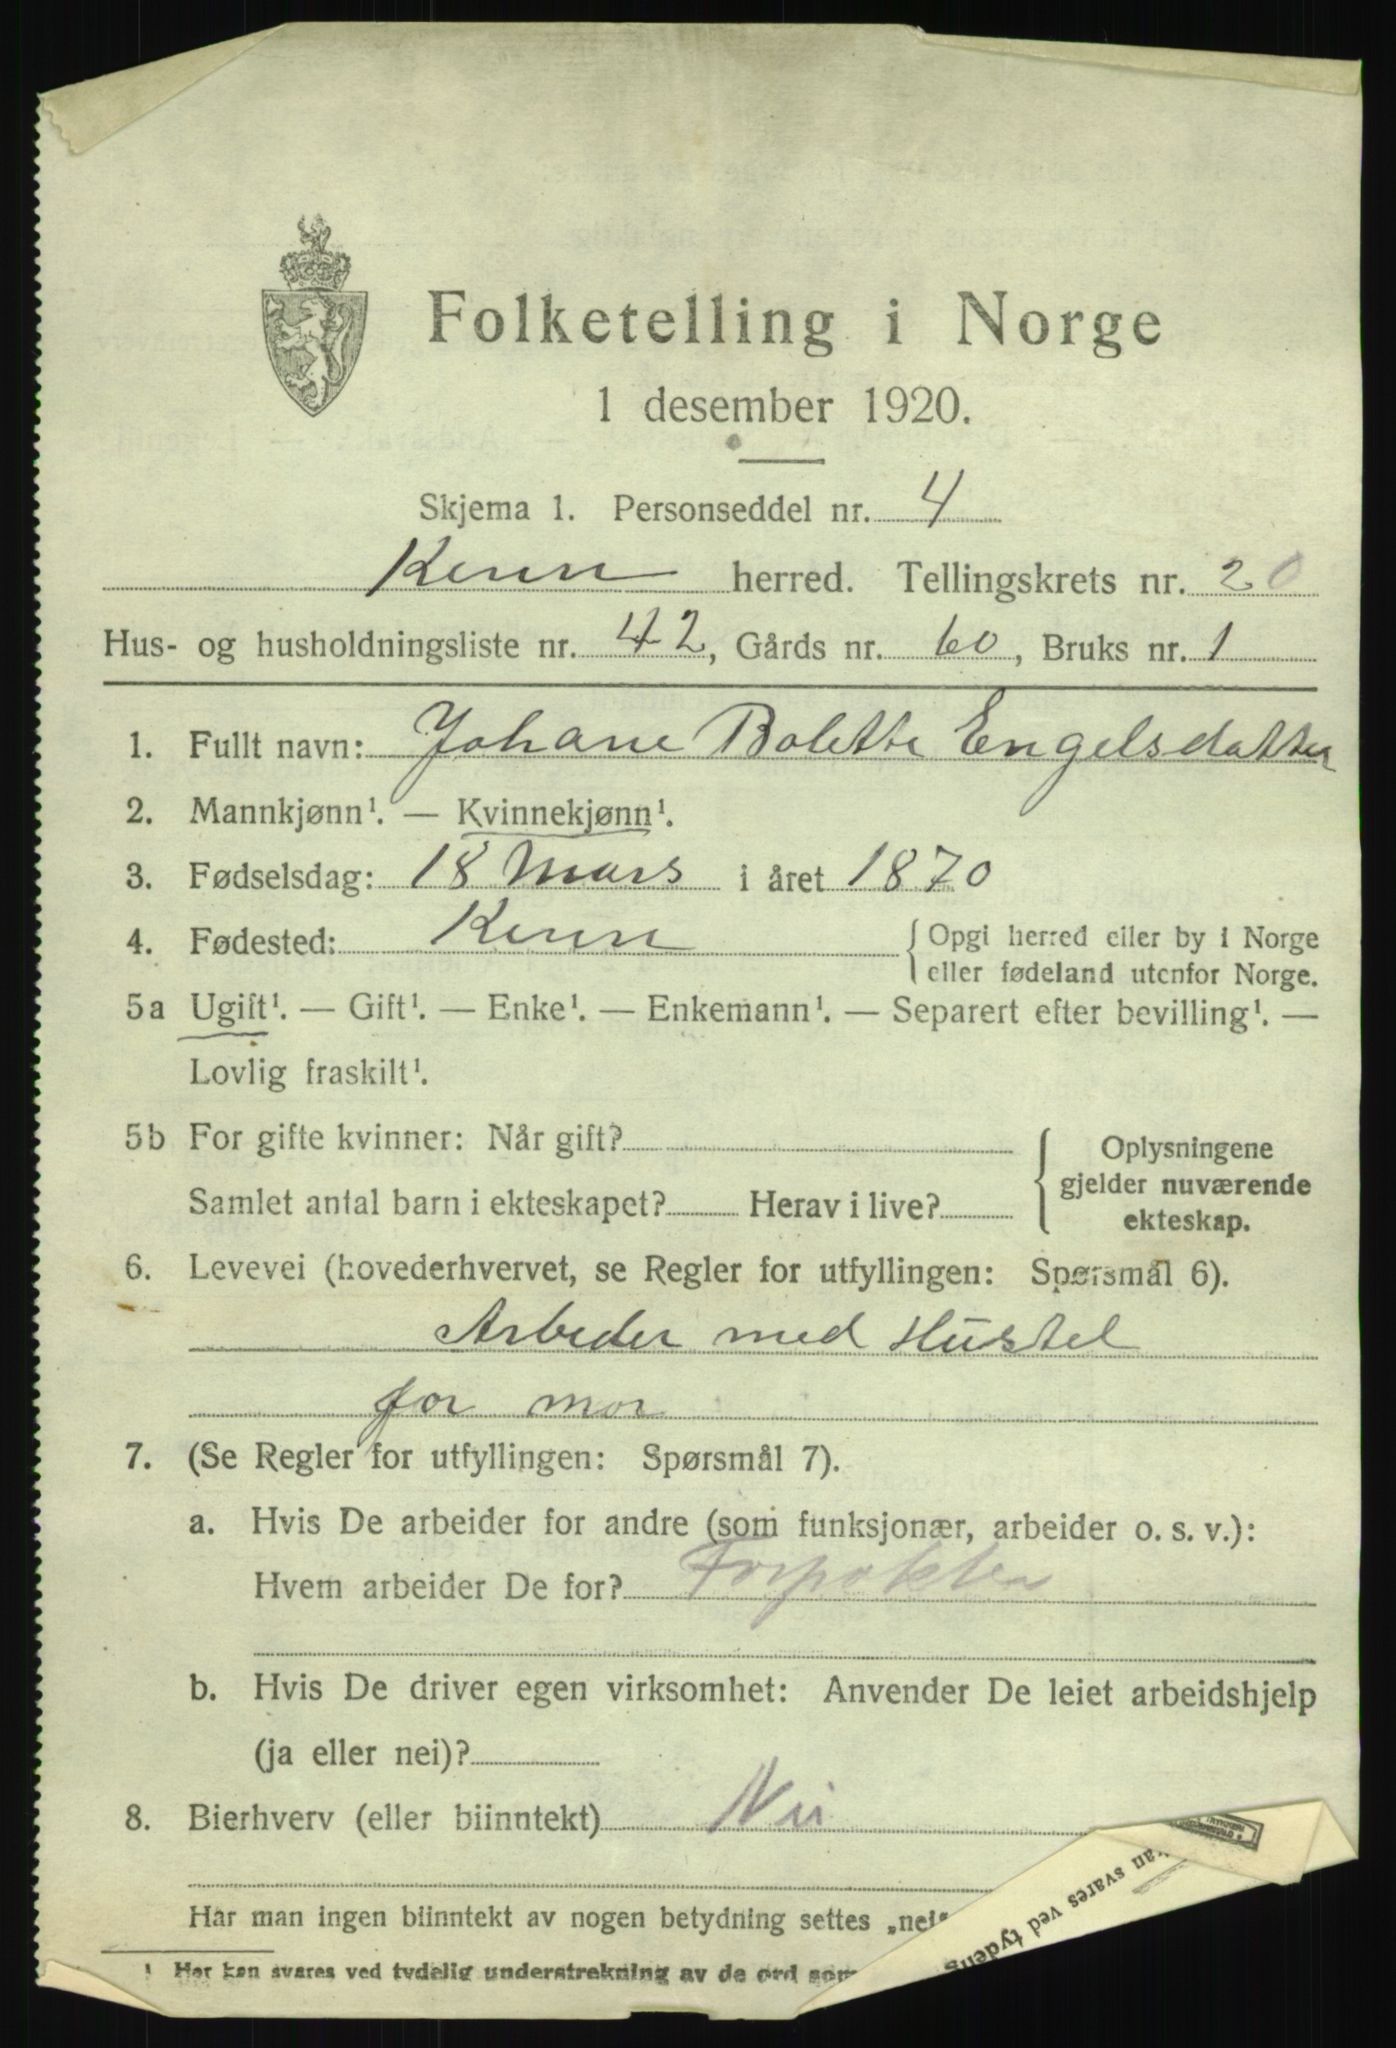 Folketelling i Norge
1 desember 1920.
Skjema 1. Personseddel nr. 4
Kinn herred. Tellingskrets nr. 20
Hus- og husholdningsliste nr. 42, Gårds nr. 60, Bruks nr. 1
1. Fullt navn: Johane Bolette Engelsdatter
2. Mannkjønn¹. — Kvinnekjønn¹.
3. Fødselsdag: 18 Mars i året 1870
4. Fødested: Kinn { Opgi herred eller by i Norge
eller fødeland utenfor Norge.
5a Ugift¹. — Gift¹. — Enke¹. — Enkemann¹. — Separert efter bevilling¹. —
Lovlig fraskilt¹.
5b For gifte kvinner: Når gift? { Oplysningene
gjelder nuværende
ekteskap.
Samlet antal barn i ekteskapet? Herav i live?
6. Levevei (hovederhvervet, se Regler for utfyllingen: Spørsmål 6).
Arbeder med Hustel
for mor
7. (Se Regler for utfyllingen: Spørsmål 7).
a. Hvis De arbeider for andre (som funksjonær, arbeider o. s. v.):
Hvem arbeider De for?
b. Hvis De driver egen virksomhet: Anvender De leiet arbeidshjelp
(ja eller nei)?
8. Bierhverv (eller biinntekt) Nei
Har man ingen biinntekt av nogen betydning settes „nei
¹ Her kan svares ved tydelig understrekning av de ord som
kan svares ved tydelig